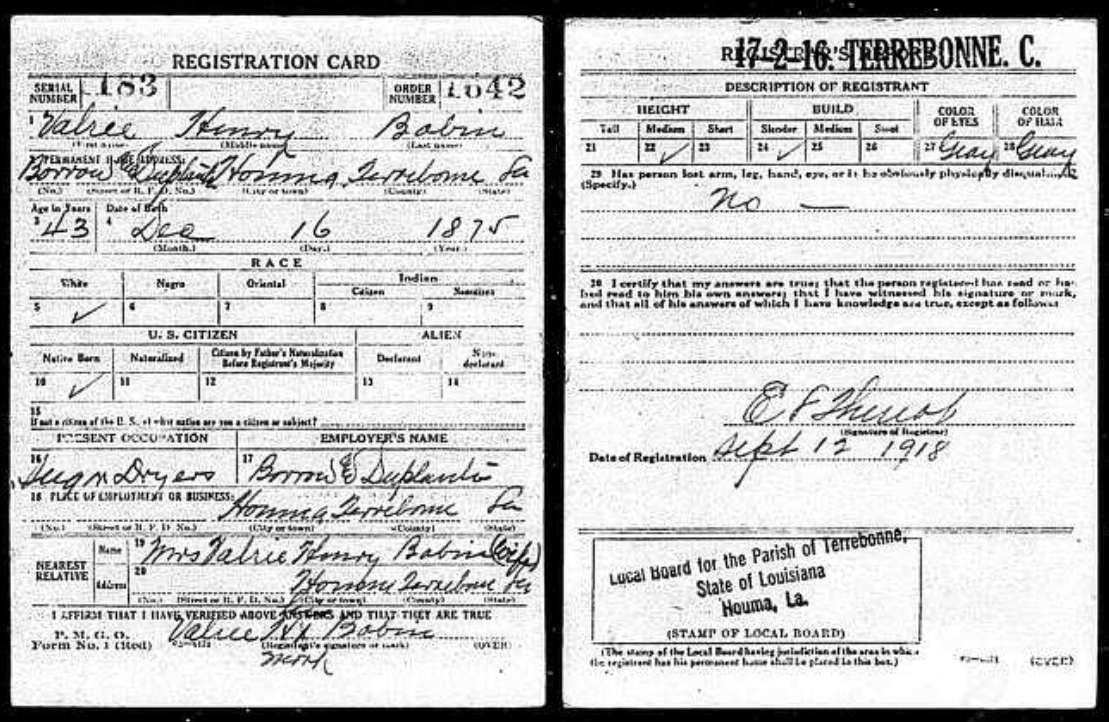 REGISTRATION CARD
SERIAL NUMBER 183 ORDER NUMBER 1042
1 Valrie Henry Babin
(First name) (Middle name) (Last name)
2 PERMANENT HOME ADDRESS:
Borrow & Duplantis Houma Terrebonne La
(No.) (Street or R. F. D. No.) (City or town) (County) (State)
Age in Years Date of Birth
3 43 4 Dec 16 1875
(Month.) (Day.) (Year.)
RACE
White Negro Oriental Indian
Citizen Noncitizen
5 ✓ 6 7 8 9
U. S. CITIZEN ALIEN
Native Born Naturalized Citizen by Father's Naturalization Before Registrant's Majority Declarant Non-declarant
10 ✓ 11 12 13 14
15
If not a citizen of the U. S., of what nation are you a citizen or subject?
PRESENT OCCUPATION EMPLOYER'S NAME
16 Dryers 17 Borrow & Duplantis
18 PLACE OF EMPLOYMENT OR BUSINESS:
Houma Terrebonne La
(No.) (Street or R. F. D. No.) (City or town) (County) (State)
NEAREST RELATIVE
Name 19 Mrs Valrie Henry Babin (wife)
Address 20 Houma Terrebonne La
(No.) (Street or R. F. D. No.) (City or town) (County) (State)
I AFFIRM THAT I HAVE VERIFIED ABOVE ANSWERS AND THAT THEY ARE TRUE
P. M. G. O.
Form No. 1 (Red) Valrie H x Babin
(Registrant's signature or mark) (OVER)
mark
REGISTRAR'S
17-2-16. TERREBONNE. C.
DESCRIPTION OF REGISTRANT
HEIGHT BUILD COLOR OF EYES COLOR OF HAIR
Tall Medium Short Slender Medium Stout
21 22 ✓ 23 24 ✓ 25 26 27 Gray 28 Gray
29 Has person lost arm, leg, hand, eye, or is he obviously physically disqualified?
(Specify.)
No —
30 I certify that my answers are true; that the person registered has read or has
had read to him his own answers; that I have witnessed his signature or mark,
and that all of his answers of which I have knowledge are true, except as follows:
E F
(Signature of Registrar)
Date of Registration Sept 12 1918
Local Board for the Parish of Terrebonne,
State of Louisiana
Houma, La.
(STAMP OF LOCAL BOARD)
(The stamp of the Local Board having jurisdiction of the area in which
the registrant has his permanent home shall be placed in this box.)
(OVER)